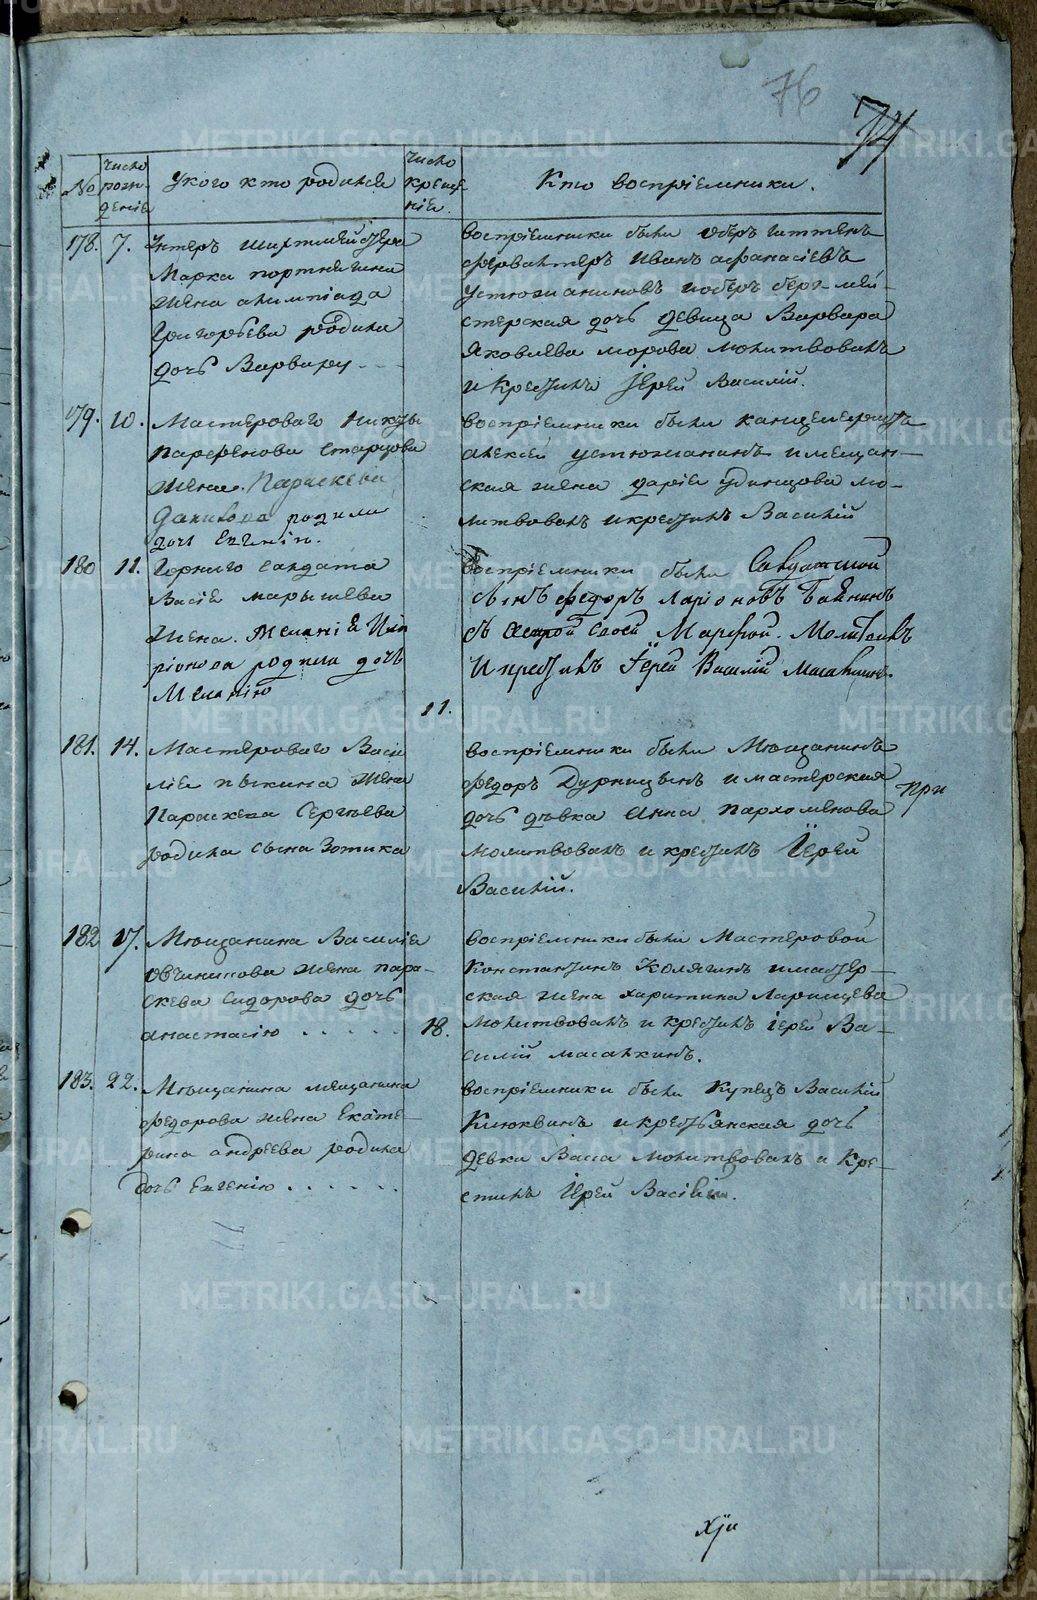 76
74
№
число рождение
у кого кто родился
число крещение
Кто воспріемники.
178. 7. Унтеръ шихтмейстера
Марка портнягина
жена олимпіада
Григорьева родила
дочь Варвару
воспріемники были оберъ гиттенъ
ферватеръ Иванъ афанасіевъ
устюжаниновъ и оберъ берг-мей-
стерская дочь девица Варвара
Яковлева морова молитвовалъ
и Крестилъ Іерей Василій.
179. 10. Мастероваго
парфенова старцова
жена. Параскева
Данилова родила
дочь Евгенію.
воспріемники были канцеляристъ
алексей устюжанинъ и мещан-
ская жена дарія удинцова мо-
литвовалъ и крестилъ Василій
180 11. Горнаго салдата
Васіле марышева
жена. Меланіе Илл
ріонова родила дочь
Меланію
11.
воспріемники были Салдатской
сынъ федоръ ларіоновъ
съ сестрой своей Марфой. Молитвовъ
И крестилъ Іерей Василій Масалкинъ.
181. 14. Мастероваго Васи
ліе пыкина жена
Параскева Сергъева
родила сына Зотика
воспріемники были Мещанинъ
федоръ Дурницынъ и мастерская
дочь дъвка Анна Пархоменова
молитвовалъ и крестилъ Іерей
Василій.
при
182 17. Мещанина Василіе
овчинникова жена пара-
скева сидорова дочь
анастасію . . . . .
18.
воспріемники были Мастеровой
Константинъ Колягинъ и мастер-
ская жена харитина Ларищева
Молитвовалъ и крестилъ іерей Ва-
силій масалкинъ.
183. 22. Мещанина мещанина
федорова жена Екате-
рина андреева родила
дочь Евгенію . . . . . .
воспріемники были Купецъ Василій
Клюквинъ и крестьянская дочь
девка Васса молитвовалъ и Кре-
стилъ Іерей Васілій.